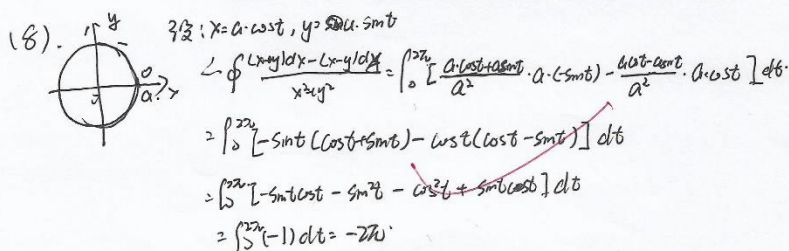 (8). y x a 0 设: x=a·cost, y=a·sint
∮ (x+y)dx-(x-y)dy / x²+y² = ∫₀^2π [ a·cost+asint / a² · a·(-sint) - acost-asint / a² · a·cost ] dt.
= ∫₀^2π [-sint(cost+sint) - cost(cost-sint)] dt
= ∫₀^2π [-sintcost - sin²t - cos²t + sintcost] dt
= ∫₀^2π (-1) dt = -2π.